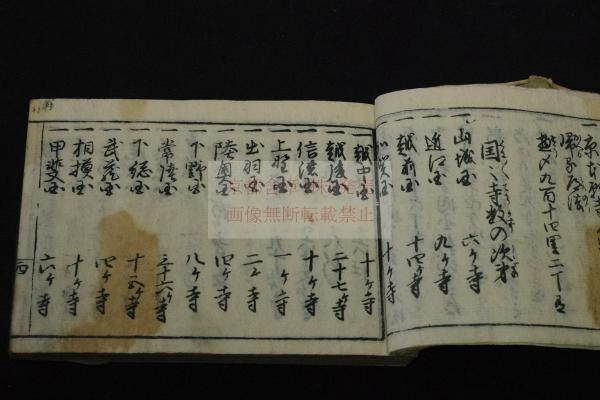 都〆九百十四里二丁
国々寺数の次第
一山城国 六ケ寺
一近江国 九ケ寺
一越前国 十四ケ寺
一加賀国 十ケ寺
一越中国 十ケ寺
一越後国 二十七ケ寺
一信濃国 十ケ寺
一上野国 一ケ寺
一出羽国 二ケ寺
一陸奥国 四ケ寺
一下野国 八ケ寺
一常陸国 三十六ケ寺
一下総国
一武蔵国 四ケ寺
一相模国 十ケ寺
一甲斐国 六ケ寺
四
画像無断転載禁止